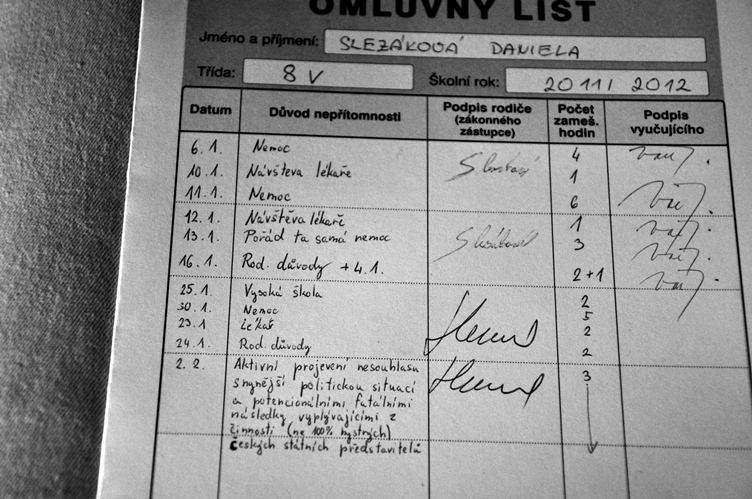 OMLUVNÝ LIST
Jméno a příjmení: SLEZÁKOVÁ DANIELA
Třída: 8 V Školní rok: 2011/2012
Datum Důvod nepřítomnosti Podpis rodiče (zákonného zástupce) Počet zameš. hodin Podpis vyučujícího
6. 1. Nemoc 4
10. 1. Návšteva lékaře 1
11. 1. Nemoc 6
12. 1. Návštěva lékaře 1
13. 1. Pořád ta samá nemoc 3
16. 1. Rod. důvody + 4. 1. 2+1
25. 1. Vysoká škola 2
30. 1. Nemoc 5
23. 1 Lékař 2
24. 1. Rod. důvody 2
2. 2. Aktivní projevení nesouhlasu 3
s nynější politickou situací
a potencionálními fatálními
následky vyplývajícími z
činnosti (na 100% bystrých)
českých státních představitelů